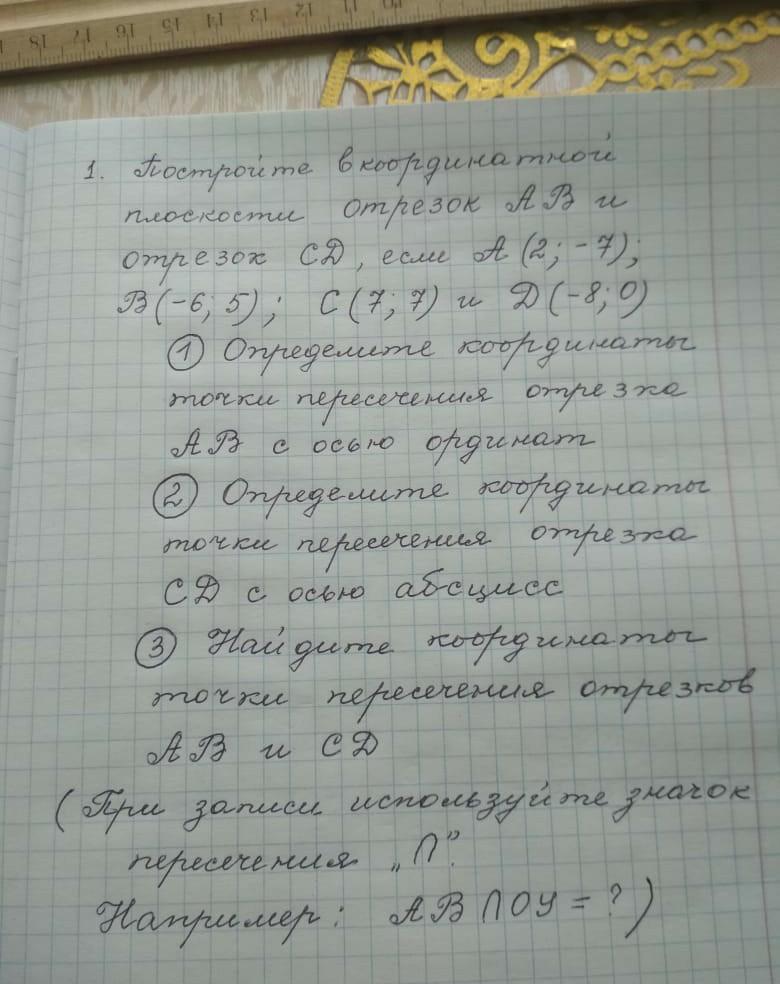 18 17 16 15 14 13 12 11 10
1. Постройте в координатной
плоскости отрезок АВ и
отрезок СД, если А (2; -7);
В (-6; 5); С (7; 7) и Д (-8; 0)
① Определите координаты
точки пересечения отрезка
АВ с осью ординат
② Определите координаты
точки пересечения отрезка
СД с осью абсцисс
③ Найдите координаты
точки пересечения отрезков
АВ и СД
(При записи используйте значок
пересечения „∩”.
Например: АВ ∩ ОУ = ?)